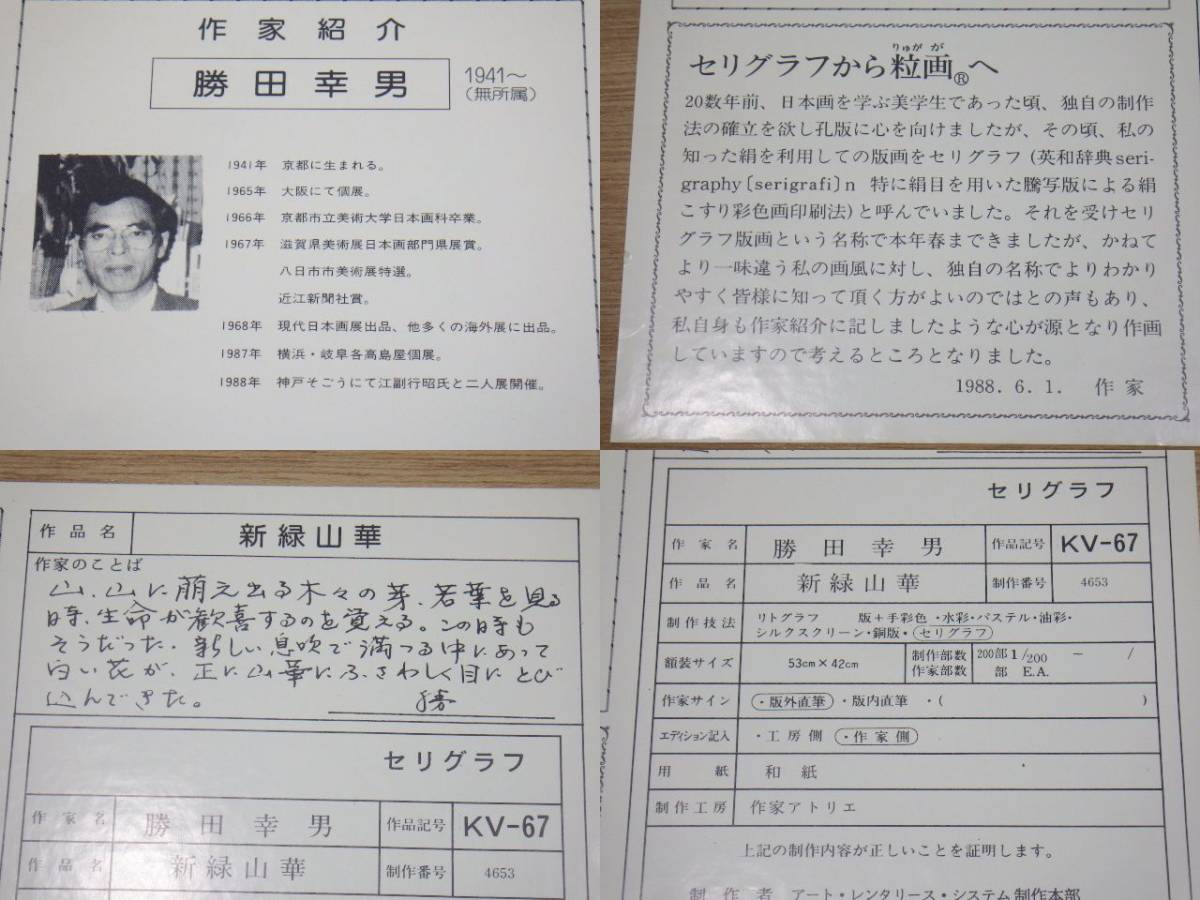 作家紹介
勝田幸男
1941〜
(無所属)
1941年 京都に生まれる。
1965年 大阪にて個展。
1966年 京都市立美術大学日本画科卒業。
1967年 滋賀県美術展日本画部門県展賞。
八日市市美術展特選。
近江新聞社賞。
1968年 現代日本画展出品、他多くの海外展に出品。
1987年 横浜・岐阜各高島屋個展。
1988年 神戸そごうにて江副行昭氏と二人展開催。
りゅがが
セリグラフから粒画®へ
20数年前、日本画を学ぶ美学生であった頃、独自の制作
法の確立を欲し孔版に心を向けましたが、その頃、私の
知った絹を利用しての版画をセリグラフ(英和辞典seri-
graphy〔serigrafi〕n 特に絹目を用いた騰写版による絹
こすり彩色画印刷法)と呼んでいました。それを受けセリ
グラフ版画という名称で本年春まできましたが、かねて
より一味違う私の画風に対し、独自の名称でよりわかり
やすく皆様に知って頂く方がよいのではとの声もあり、
私自身も作家紹介に記しましたような心が源となり作画
していますので考えるところとなりました。
1988.6.1. 作家
作品名 新緑山華
作家のことば
山、山に萠え出る木々の芽、若葉を見る
時、生命が歓喜するのを覚える。この時も
そうだった。新しい息吹で満つる中にあって
白い花が、正に山華にふさわしく目にとび
込んできた。 勝
セリグラフ
作家名 勝田幸男 作品記号 KV-67
作品名 新緑山華 制作番号 4653
セリグラフ
作家名 勝田幸男 作品記号 KV-67
作品名 新緑山華 制作番号 4653
制作技法 リトグラフ 版+手彩色・水彩・パステル・油彩・
シルクスクリーン・銅版・セリグラフ
額装サイズ 53cm×42cm 制作部数 200部 1/200 − /
作家部数 部 E.A.
作家サイン ・版外直筆 ・版内直筆 ・( )
エディション記入 ・工房側 ・作家側
用紙 和紙
制作工房 作家アトリエ
上記の制作内容が正しいことを証明します。
制作者 アート・レンタリース・システム制作本部